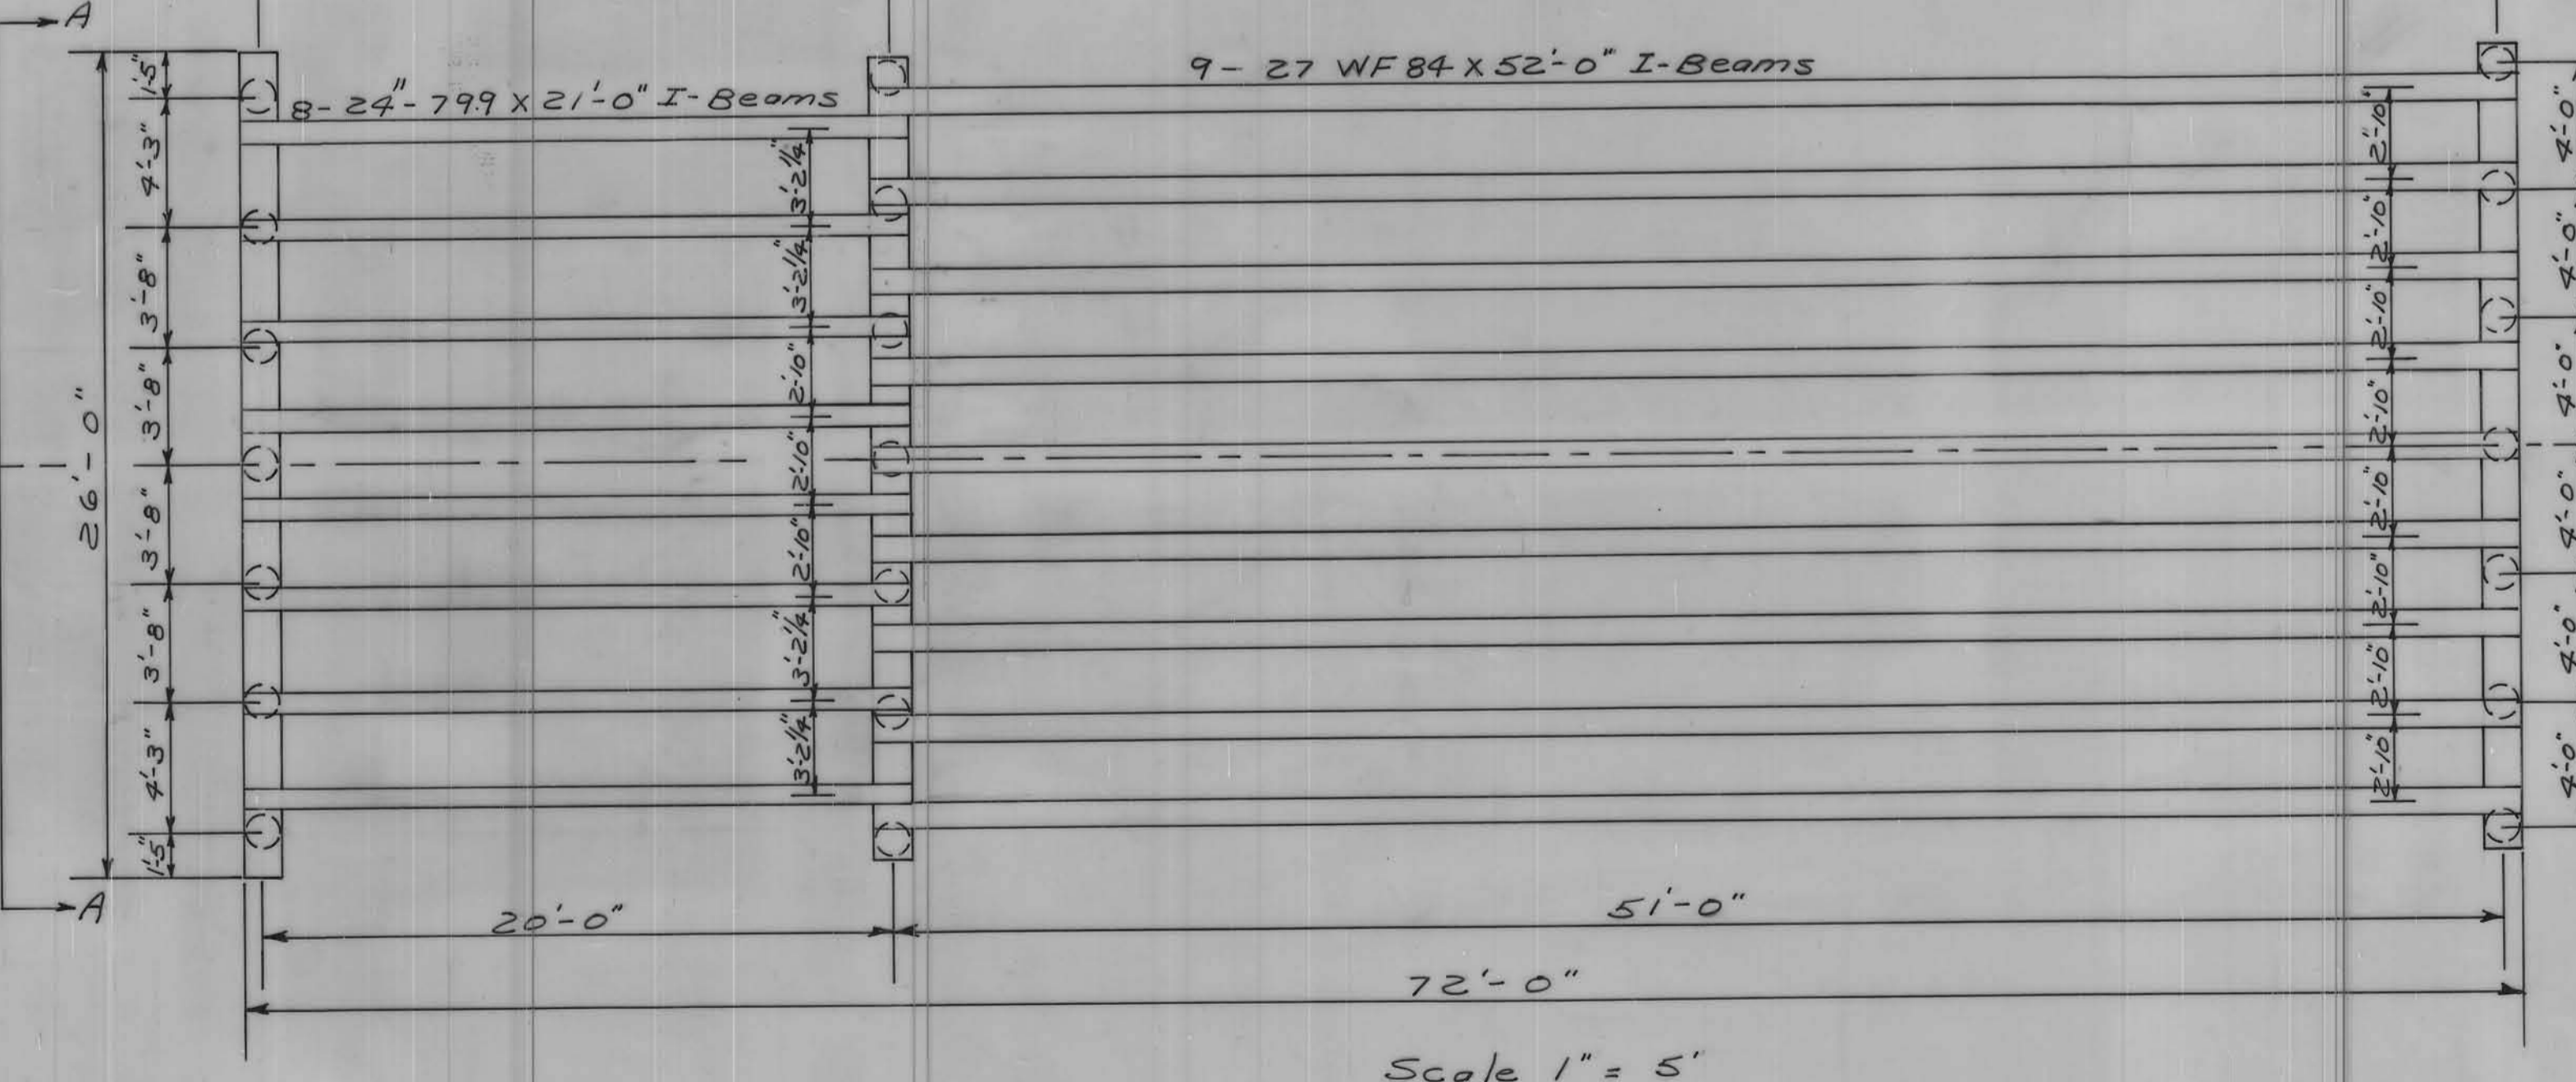 A
9 - 27 WF 84 X 52'-0" I-Beams
8 - 24" - 79.9 X 21'-0" I-Beams
1'-5"
4'-3"
3'-8"
3'-8"
3'-8"
3'-8"
4'-3"
1'-5"
26'-0"
3'-2 1/4"
3'-2 1/4"
2'-10"
2'-10"
2'-10"
3'-2 1/4"
3'-2 1/4"
2'-10"
2'-10"
2'-10"
2'-10"
2'-10"
2'-10"
2'-10"
2'-10"
4'-0"
4'-0"
4'-0"
4'-0"
4'-0"
4'-0"
A
20'-0"
51'-0"
72'-0"
Scale 1" = 5'